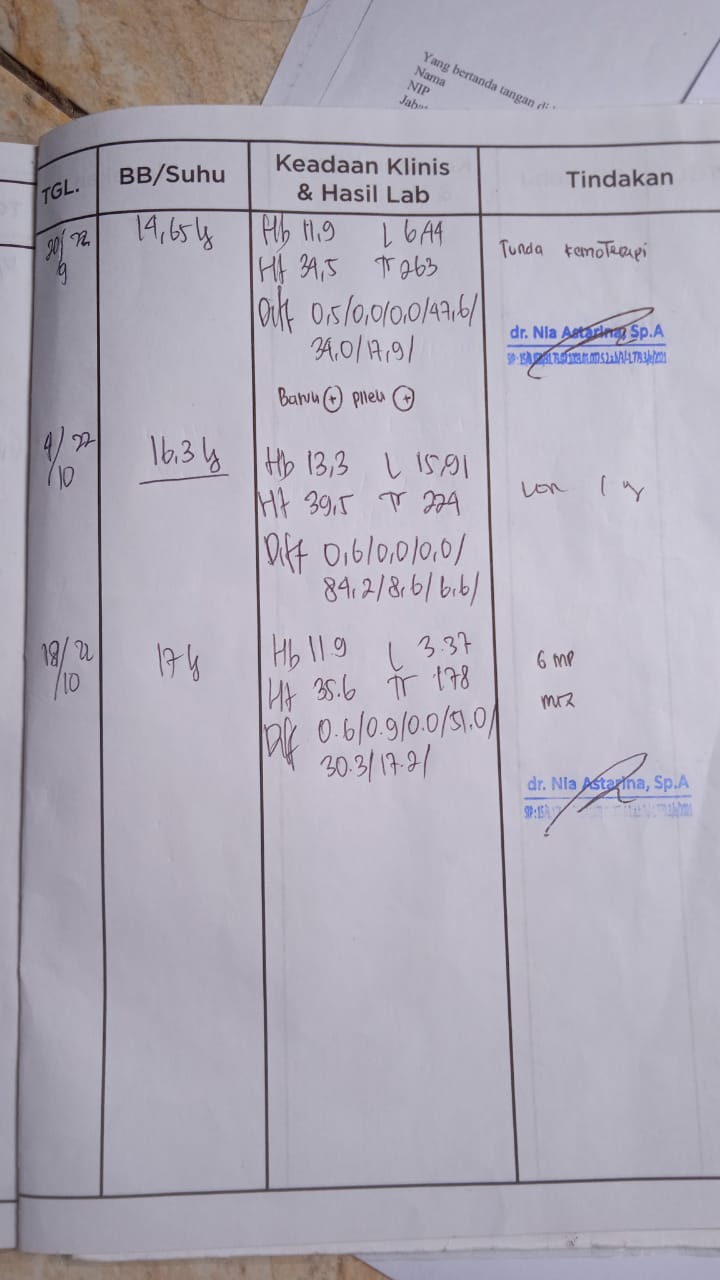 Yang bertanda tangan di
Nama
NIP
Jaba
TGL.
BB/Suhu
Keadaan Klinis
& Hasil Lab
Tindakan
20/22
9
14,65 kg
Hb 11,9 L 6,44
Ht 34,5 Tr 263
Diff 0,5/0,0/0,0/47,6/
34,0/17,9/
Batuk (+) pilek (+)
Tunda kemoterapi
dr. Nia Astarina, Sp.A
4/22
10
16,3 kg
Hb 13,3 L 15,91
Ht 39,5 Tr 224
Diff 0,6/0,0/0,0/
84,2/8,6/6,6/
18/22
10
17 kg
Hb 11.9 L 3.37
Ht 35.6 Tr 178
Diff 0.6/0.9/0.0/51.0/
30.3/17.2/
6 MP
MTX
dr. Nia Astarina, Sp.A